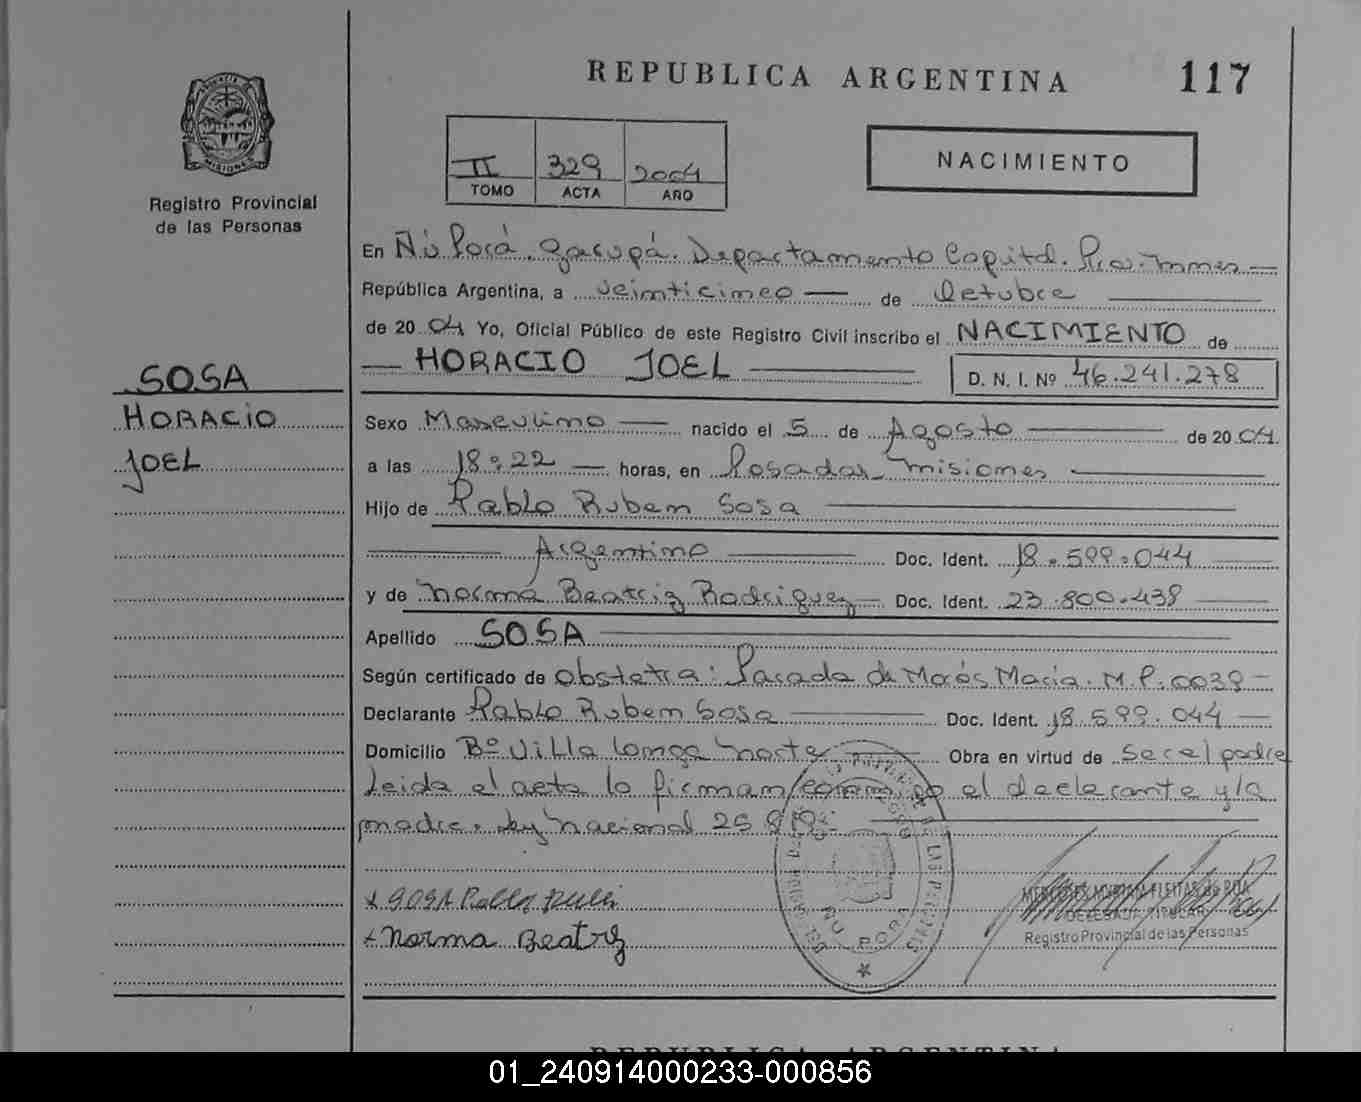 REPUBLICA ARGENTINA 117
MISIONES
Registro Provincial
de las Personas
II 329 2004
TOMO ACTA AÑO
NACIMIENTO
En Ñú Porá. Garupá. Departamento Capital. Prov. Mnes
República Argentina, a veinticinco de Octubre
de 2004 Yo, Oficial Público de este Registro Civil inscribo el NACIMIENTO de
HORACIO JOEL D. N. I. Nº 46.241.278
SOSA
HORACIO
JOEL
Sexo Masculino nacido el 5 de Agosto de 2004
a las 18:22 horas, en Posadas Misiones
Hijo de Pablo Ruben Sosa
Argentino Doc. Ident. 18.599.044
y de Norma Beatriz Rodriguez Doc. Ident. 23.800.438
Apellido SOSA
Según certificado de obstetra: Parada de Morós Maria. M.P. 0039
Declarante Pablo Ruben Sosa Doc. Ident. 18.599.044
Domicilio Bº Villa Longa Norte Obra en virtud de Ser el padre
Leida el acta la firman conmigo el declarante y la
madre. Ley Nacional
SOSA Pablo
Norma Beatriz
ÑU PORA
MERCEDES MYRIAM FLEITAS de RUA
DELEGADA TITULAR
Registro Provincial de las Personas
REPUBLICA ARGENTINA
01_240914000233-000856